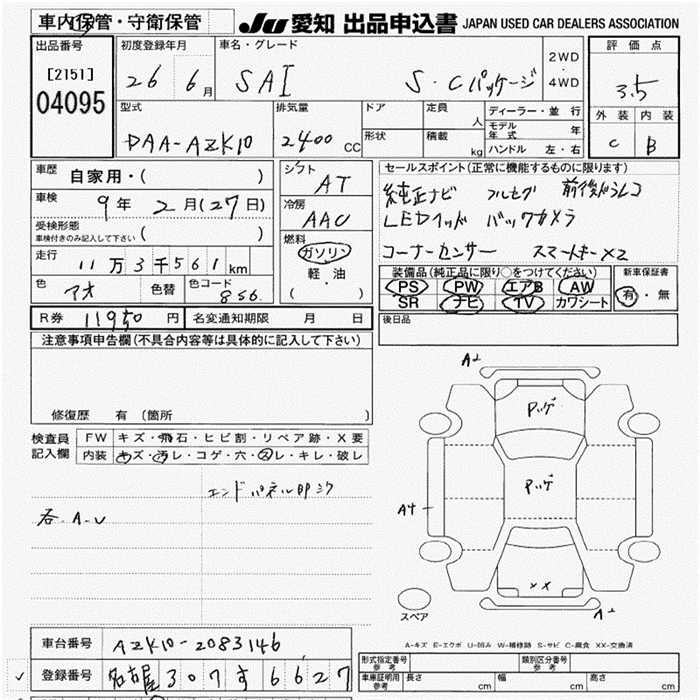 車内保管・守衛保管
JU 愛知 出品申込書 JAPAN USED CAR DEALERS ASSOCIATION
出品番号
[2151]
04095
初度登録年月
26 6月
車名・グレード
SAI S・Cパッケージ
2WD
・
4WD
評価点
3.5
外装 内装
C B
型式
DAA-AZK10
排気量
2400 CC
ドア
形状
定員 人
積載 kg
ディーラー・並行
モデル年式 年
ハンドル 左・右
車歴 自家用・( )
車検 9年 2月(27日)
受検形態
車検付きのみ記入して下さい ( )
走行 11万3千561km
色 アオ 色替 色コード 8S6
シフト AT
冷房 AAC
燃料
ガソリン
軽・油
( ・ )
セールスポイント(正常に機能するものに限ります)
純正ナビ フルセグ 前後ドラレコ
LEDヘッド バックカメラ
コーナーセンサー スマートキーx2
装備品(純正品に限り○をつけてください)
PS PW エアB AW
SR ナビ TV カワシート
新車保証書
有・無
R券 11950円 名変通知期限 月 日
後日品
注意事項申告欄(不具合内容等は具体的に記入して下さい)
修復歴 有 (箇所 )
検査員
記入欄
FW キズ・飛石・ヒビ割・リペア跡・X要
内装 キズ・汚レ・コゲ・穴・スレ・キレ・破レ
エンドパネル凹ミク
各.A.U
A2
Pッゲ
Pッゲ
A4
xx
A2
スペア
A-キズ E-エクボ U-凹み W-補修跡 S-サビ C-腐食 XX-交換済
車台番号 AZK10-2083146
登録番号 名古屋 307 す 6627
型式指定番号
参考
類別区分番号
参考
車庫証明用
参考
長さ cm 幅 cm 高さ cm